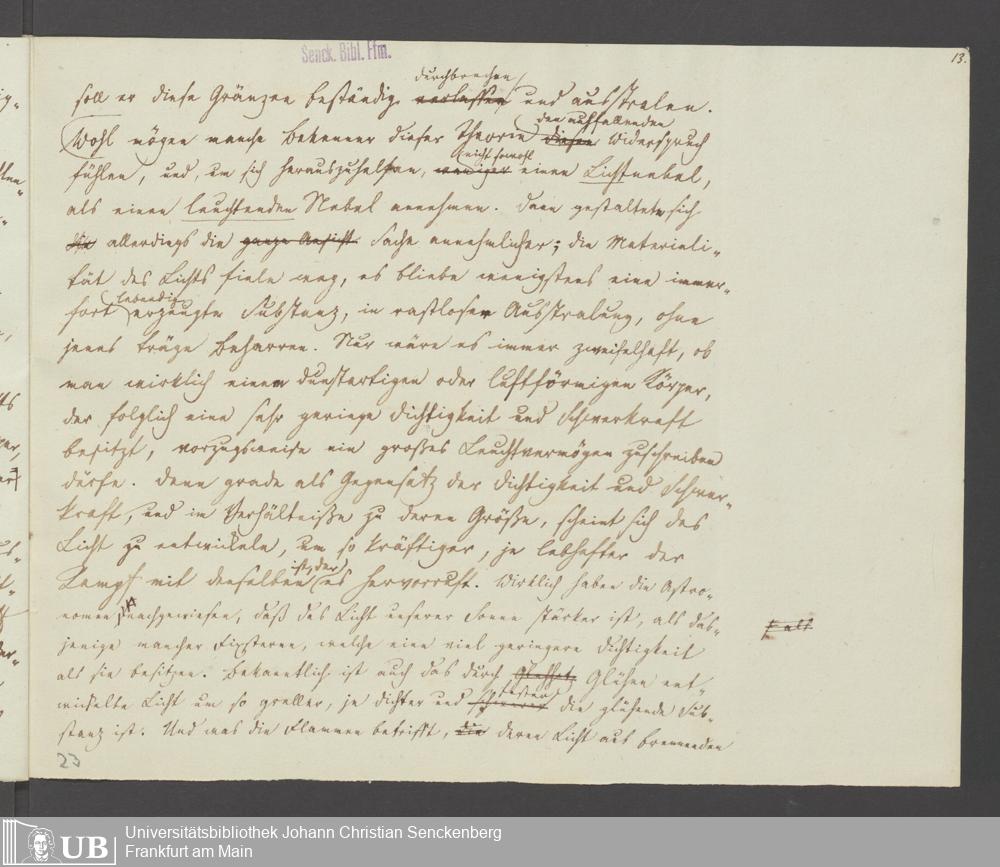 Senck. Bibl. Ffm.
13.
durchbrechen
soll er diese Gränzen beständig verlassen und ausstralen.
den auffallenden
Wohl mögen manche Bekenner dieser Theorie diesen Widerspruch
nicht sowohl
fühlen, und, um sich herauszuhelfen, weniger einen Lichtnebel,
als einen leuchtenden Nebel annehmen. Dann gestaltete sich
die allerdings die ganze Ansicht Sache annehmlicher; die Materiali-
tät des Lichts fiele weg, es bliebe wenigstens eine immer-
lebendig
fort erzeugte Substanz, in rastloser Ausstralung, ohne
jenes träge Beharren. Nur wäre es immer zweifelhaft, ob
man wirklich einem dunstartigen oder luftförmigen Körper,
der folglich eine sehr geringe Dichtigkeit und Schwerkraft
besitzt, vorzugsweise ein großes Leuchtvermögen zuschreiben
dürfe. Denn grade als Gegensatz der Dichtigkeit und Schwer-
kraft, und im Verhältniße zu deren Größe, scheint sich das
Licht zu entwickeln, um so kräftiger, je lebhafter der
ist, der
Kampf mit denselben es hervorruft. Wirklich haben die Astro-
nomen nachgewiesen, daß das Licht unserer Sonne stärker ist, als das-
jenige mancher Fixsterne, welche eine viel geringere Dichtigkeit
als sie besitzen. Bekanntlich ist auch das durch Glühen ent-
fester
wickelte Licht um so greller, je dichter und schwerer die glühende Sub-
stanz ist. Und was die Flammen betrifft, die deren Licht aus brennenden
23
Universitätsbibliothek Johann Christian Senckenberg
Frankfurt am Main
UB